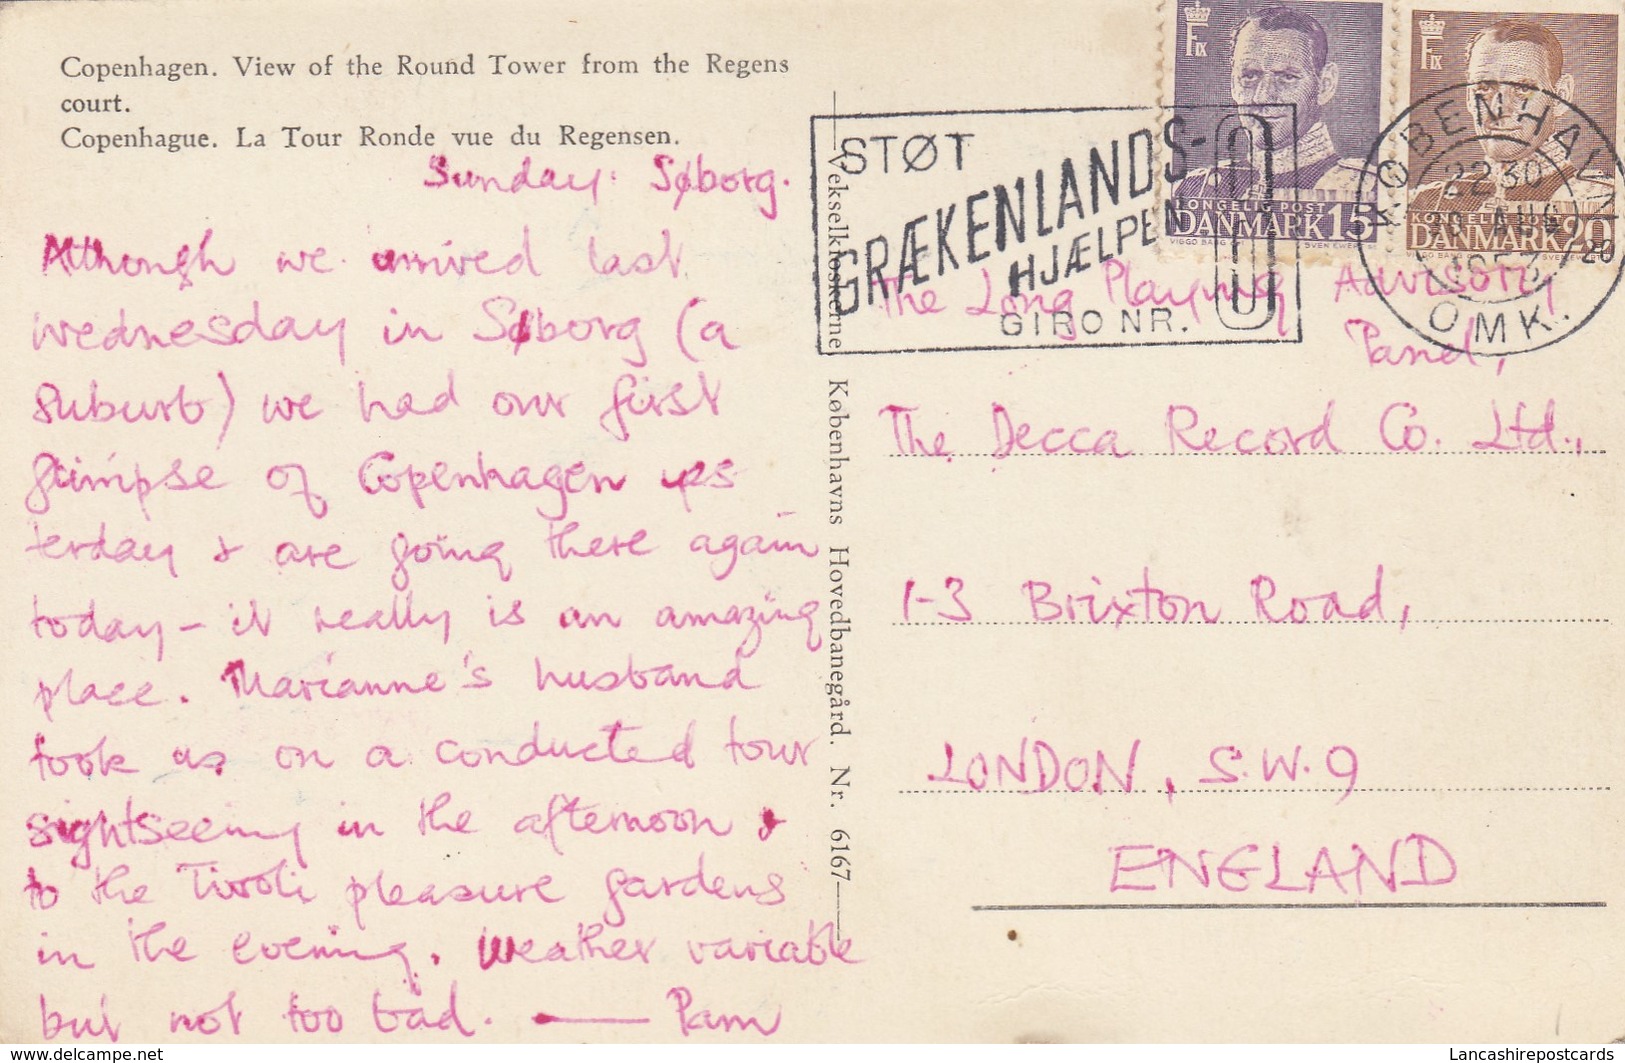 Copenhagen. View of the Round Tower from the Regens
court.
Copenhague. La Tour Ronde vue du Regensen.
Sunday: Søborg.
Although we arrived last
Wednesday in Søborg (a
suburb) we had our first
glimpse of Copenhagen yes-
terday & are going there again
today – it really is an amazing
place. Marianne's husband
took us on a conducted tour
sightseeing in the afternoon &
to the Tivoli pleasure gardens
in the evening. Weather variable
but not too bad. — Pam
Vekselkioskerne, Københavns Hovedbanegård. Nr. 6167
STØT
GRÆKENLANDS-
HJÆLPEN
GIRO NR.
KØBENHAVN
2230
AUG
1953
OMK.
20
FIX
KONGELIG POST
DANMARK 15
VIGGO BANG
SVEN EWERT
FIX
KONGELIG POST
DANMARK 20
VIGGO BANG
SVEN EWERT
The Long Playing Advisory
Panel,
The Decca Record Co. Ltd.,
1-3 Brixton Road,
LONDON, S.W.9
ENGLAND
www.delcampe.net
Lancashirepostcards